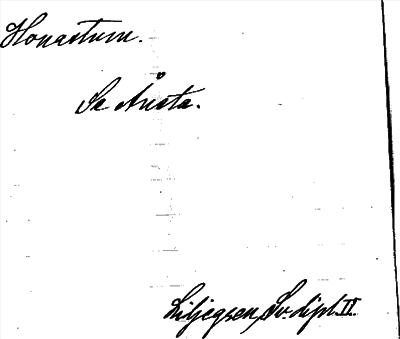 Honastum.
Se Årsta.
Liljegren, Sv. dipl. II.